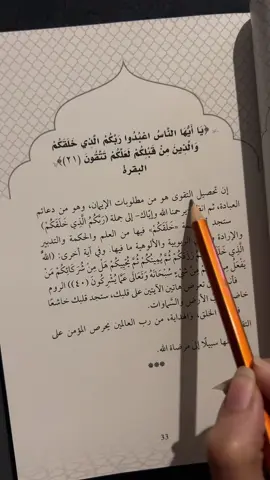 ﴿يَا أَيُّهَا النَّاسُ اعْبُدُوا رَبَّكُمُ الَّذِي خَلَقَكُمْ
وَالَّذِينَ مِنْ قَبْلِكُمْ لَعَلَّكُمْ تَتَّقُونَ (٢١)﴾
البقرة
إن تحصيل التقوى هو من مطلوبات الإيمان، وهو من دعائم
العبادة، ثم رحمنا الله وإيّاك- إلى جملة (رَبَّكُمُ الَّذِي خَلَقَكُمْ)
ستجد «خَلَقَكُمْ» فيها من العلم والحكمة والتدبير
والإرادة الربوبية والألوهية ما فيها. وفي آية أخرى: (اللَّهُ
رَزَقَكُمْ ثُمَّ يُمِيتُكُمْ ثُمَّ يُحْيِيكُمْ هَلْ مِنْ شُرَكَائِكُمْ مَنْ
يَفْعَلُ مِنْ شَيْءٍ سُبْحَانَهُ وَتَعَالَى عَمَّا يُشْرِكُونَ (٤٠)) الروم
هاتين الآيتين على قلبك، ستجد قلبك خاشعًا
الأرض والسَّماوات.
الخلق، والهداية، من رب العالمين يحرص المؤمن على
سبيلًا إلى مرضاة الله.
***
33